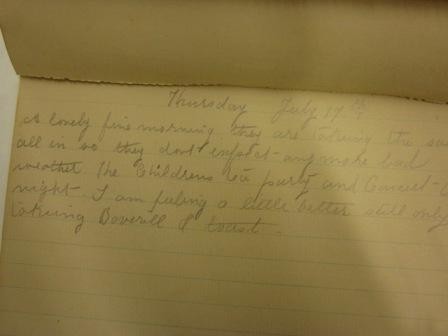 Thursday July 17th
A lovely fine morning. they are taking the
all in so they dont expect any more bad
weather. The Childrens tea party and Concert
night. I am feeling a little better still only
taking Boverill & toast.